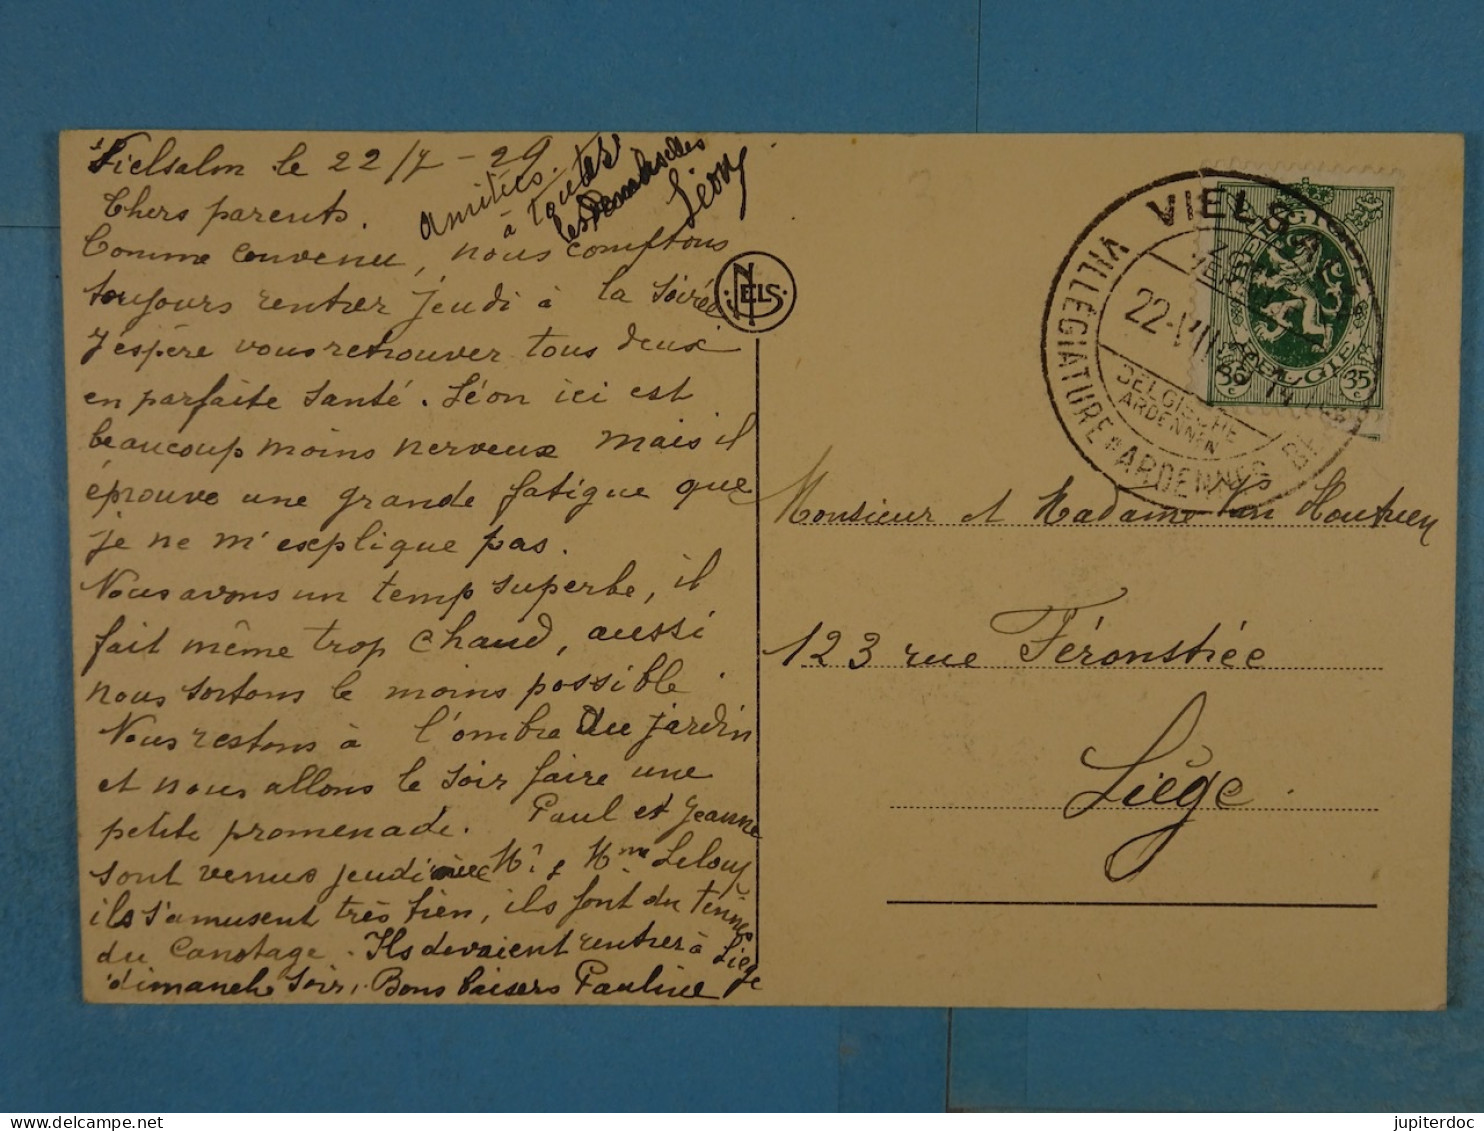 Vielsalm le 22/7-29
Chers parents.
Comme convenu, nous comptons
toujours rentrer jeudi à la soirée
J'espère vous retrouver tous deux
en parfaite santé. Léon ici est
beaucoup moins nerveux mais il
éprouve une grande fatigue que
je ne m'explique pas.
Nous avons un temp superbe, il
fait même trop chaud, aussi
nous sortons le moins possible.
Nous restons à l'ombre du jardin
et nous allons le soir faire une
petite promenade. Paul et Jeanne
sont venus jeudi avec Mr & Mme Leloup
ils s'amusent très bien, ils font du tennis
du Canotage. Ils devaient rentrer à Liège
dimanche soir. Bons baisers Pauline
amitiés
à toutes
les Demoiselles
Léon
NELS
VIELSALM
VILLÉGIATURE "ARDENNES BE
22-VII
BELGISCHE
ARDENNEN
BELGIE
35c 35c
Monsieur et Madame Van Houtven
123 rue Féronstrée
Liège.
jupiterdoc